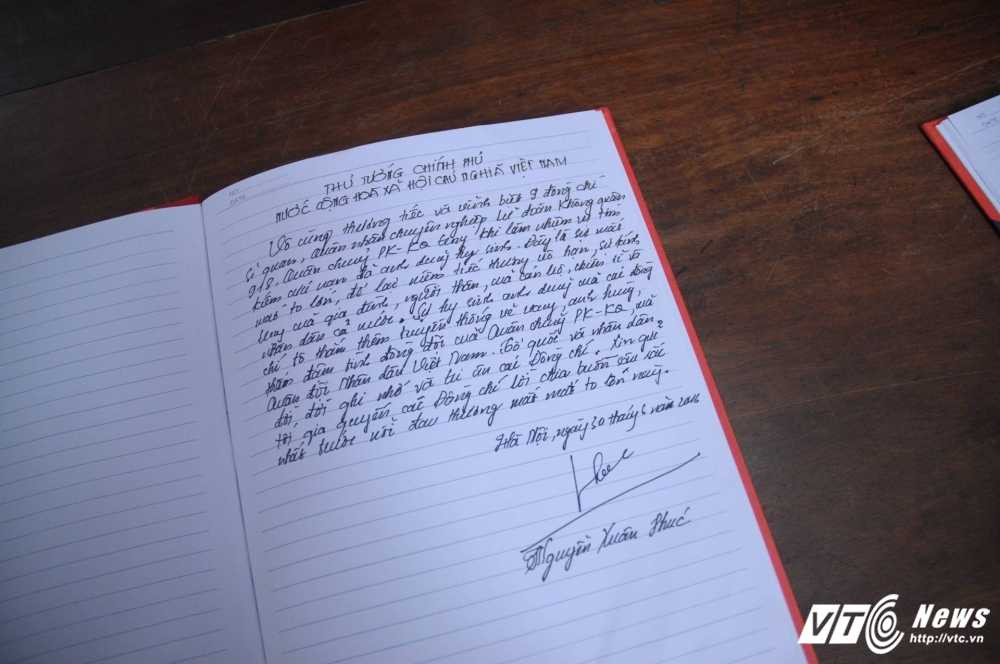 NO.
DATE
THỦ TƯỚNG CHÍNH PHỦ
NƯỚC CỘNG HOÀ XÃ HỘI CHỦ NGHĨA VIỆT NAM
Vô cùng thương tiếc và vĩnh biệt 9 đồng chí
sĩ quan, quân nhân chuyên nghiệp Lữ đoàn Không quân
918, Quân chủng PK-KQ khi làm nhiệm vụ tìm
kiếm cứu nạn đã anh dũng hy sinh. Đây là sự mất
mát to lớn, để lại niềm tiếc thương vô hạn, sự kính
trọng của gia đình, người thân, của cán bộ, chiến sĩ và
nhân dân cả nước. Sự hy sinh anh dũng của các đồng
chí tô thắm thêm truyền thống vẻ vang, anh hùng,
thắm đượm tình đồng đội của Quân chủng PK-KQ, của
Quân đội Nhân dân Việt Nam. Tổ quốc và nhân dân
đời, đời ghi nhớ và tri ân các Đồng chí. Xin gửi
tới gia quyến các Đồng chí lời chia buồn sâu sắc
nhất trước nỗi đau thương mất mát to lớn này.
Hà Nội, ngày 30 tháng 6 năm 2016
Nguyễn Xuân Phúc
VTC News
http://vtc.vn